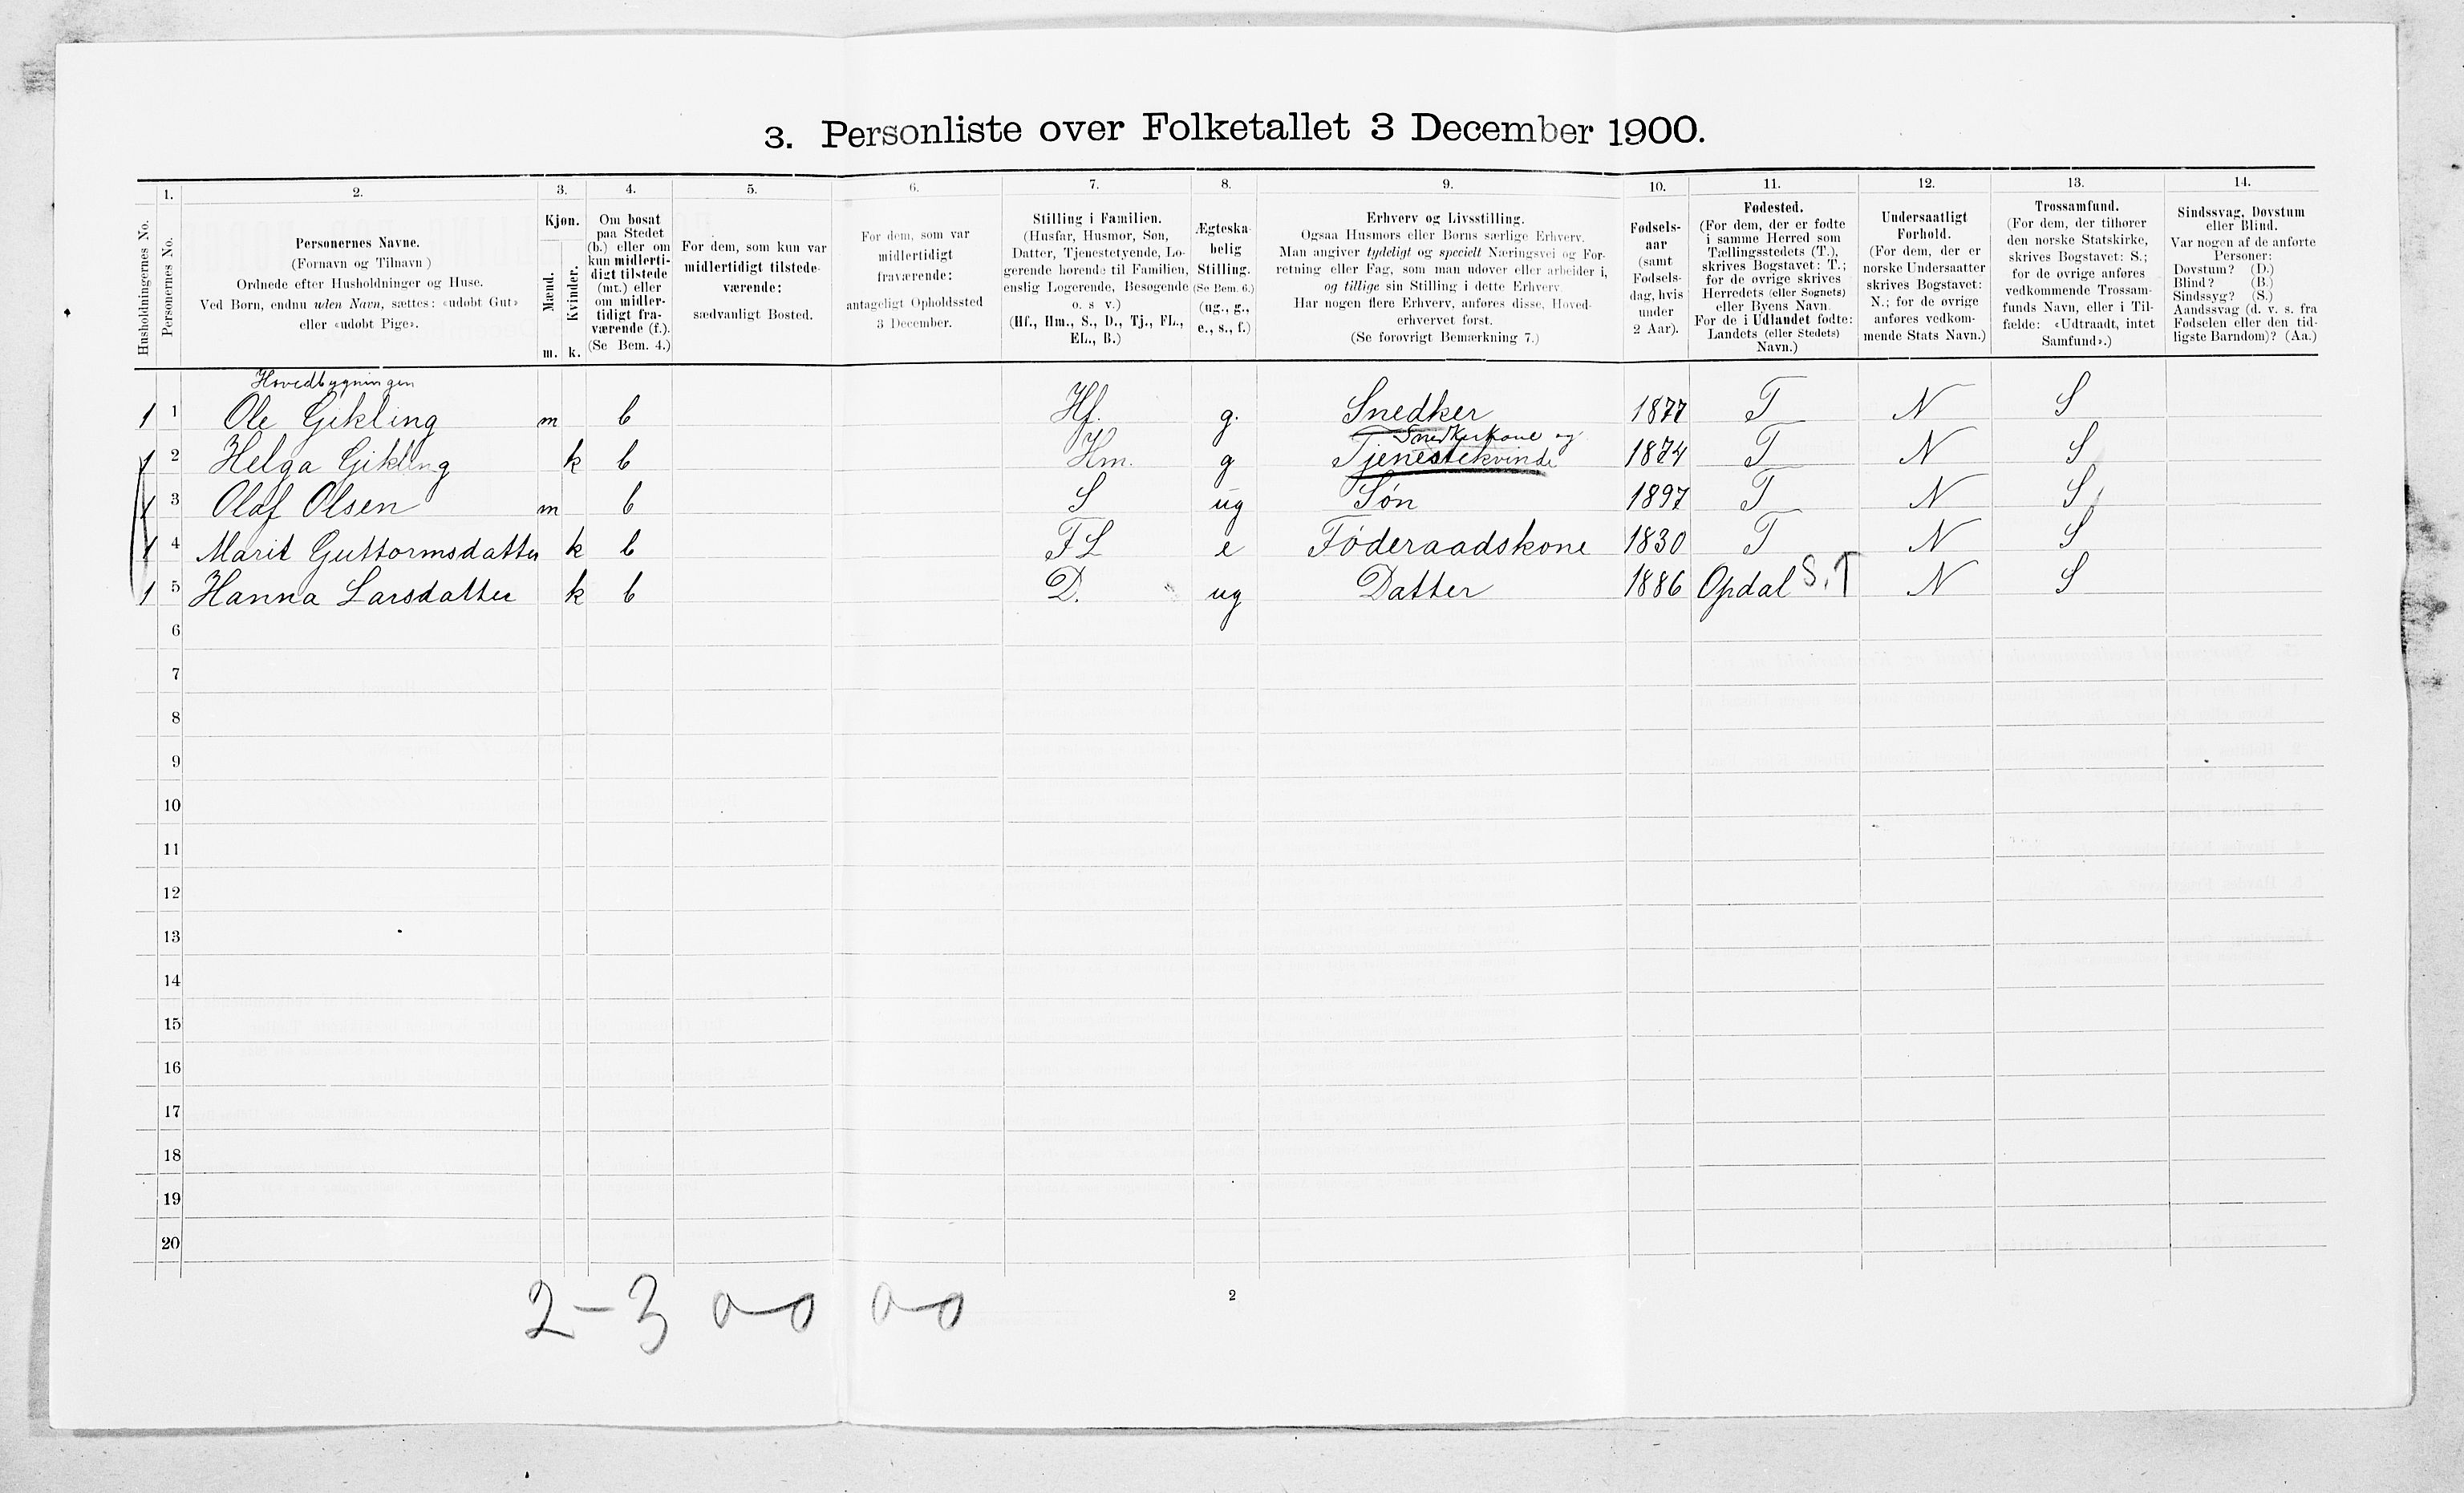 3. Personliste over Folketallet 3 December 1900.
Husholdningernes No.
1.
Personernes No.
2.
Personernes Navne.
(Fornavn og Tilnavn)
Ordnede efter Husholdninger og Huse.
Ved Børn, endnu uden Navn, sættes: «udøbt Gut»
eller «udøbt Pige».
3.
Kjøn.
Mænd.
Kvinder.
m. k.
4.
Om bosat
paa Stedet
(b.) eller om
kun midlerti-
digt tilstede
(mt.) eller
om midler-
tidigt fra-
værende (f.).
(Se Bem. 4.)
5.
For dem, som kun var
midlertidigt tilstede-
værende:
sædvanligt Bosted.
6.
For dem, som var
midlertidigt
fraværende:
antageligt Opholdssted
3 December.
7.
Stilling i Familien.
(Husfar, Husmor, Søn,
Datter, Tjenestetyende, Lo-
gerende hørende til Familien,
enslig Logerende, Besøgende
o. s v.)
(Hf., Hm., S., D., Tj., FL.,
EL., B.)
8.
Ægteska-
belig
Stilling.
(Se Bem. 6.)
(ug., g.,
e., s., f.)
9.
Erhverv og Livsstilling.
Ogsaa Husmors eller Børns særlige Erhverv.
Man angiver tydeligt og specielt Næringsvei og For-
retning eller Fag, som man udøver eller arbeider i,
og tillige sin Stilling i dette Erhverv.
Har nogen flere Erhverv, anføres disse, Hoved-
erhvervet først.
(Se forøvrigt Bemærkning 7.)
10.
Fødsels-
aar
(samt
Fødsels-
dag, hvis
under
2 Aar).
11.
Fødested.
(For dem, der er fødte
i samme Herred som
Tællingsstedets (T.),
skrives Bogstavet: T.;
for de øvrige skrives
Herredets (eller Sognets)
eller Byens Navn.
For de i Udlandet fødte:
Landets (eller Stedets)
Navn.)
12.
Undersaatligt
Forhold.
(For dem, der er
norske Undersaatter
skrives Bogstavet:
N.; for de øvrige
anføres vedkom-
mende Stats Navn.)
13.
Trossamfund.
(For dem, der tilhører
den norske Statskirke,
skrives Bogstavet: S.;
for de øvrige anføres
vedkommende Trossam-
funds Navn, eller i Til-
fælde: «Udtraadt, intet
Samfund».)
14.
Sindssvag, Døvstum
eller Blind.
Var nogen af de anførte
Personer:
Døvstum? (D.)
Blind? (B.)
Sindssyg? (S.)
Aandssvag (d. v. s. fra
Fødselen eller den tid-
ligste Barndom)? (Aa.)
Hovedbygningen
1 1 Ole Gikling m b Hf. g. Snedker 1877 T N S
Snedkerkone og
1 2 Helga Gikling k b Hm. g Tjenestekvinde 1874 T N S
1 3 Olaf Olsen m b S ug Søn 1897 T N S
1 4 Marit Guttormsdatter k b FL e Føderaadskone 1830 T N S
1 5 Hanna Larsdatter k b D. ug Datter 1886 Opdal S.T N S
6
7
8
9
10
11
12
13
14
15
16
17
18
19
20
2-3 0-0 0-0
2